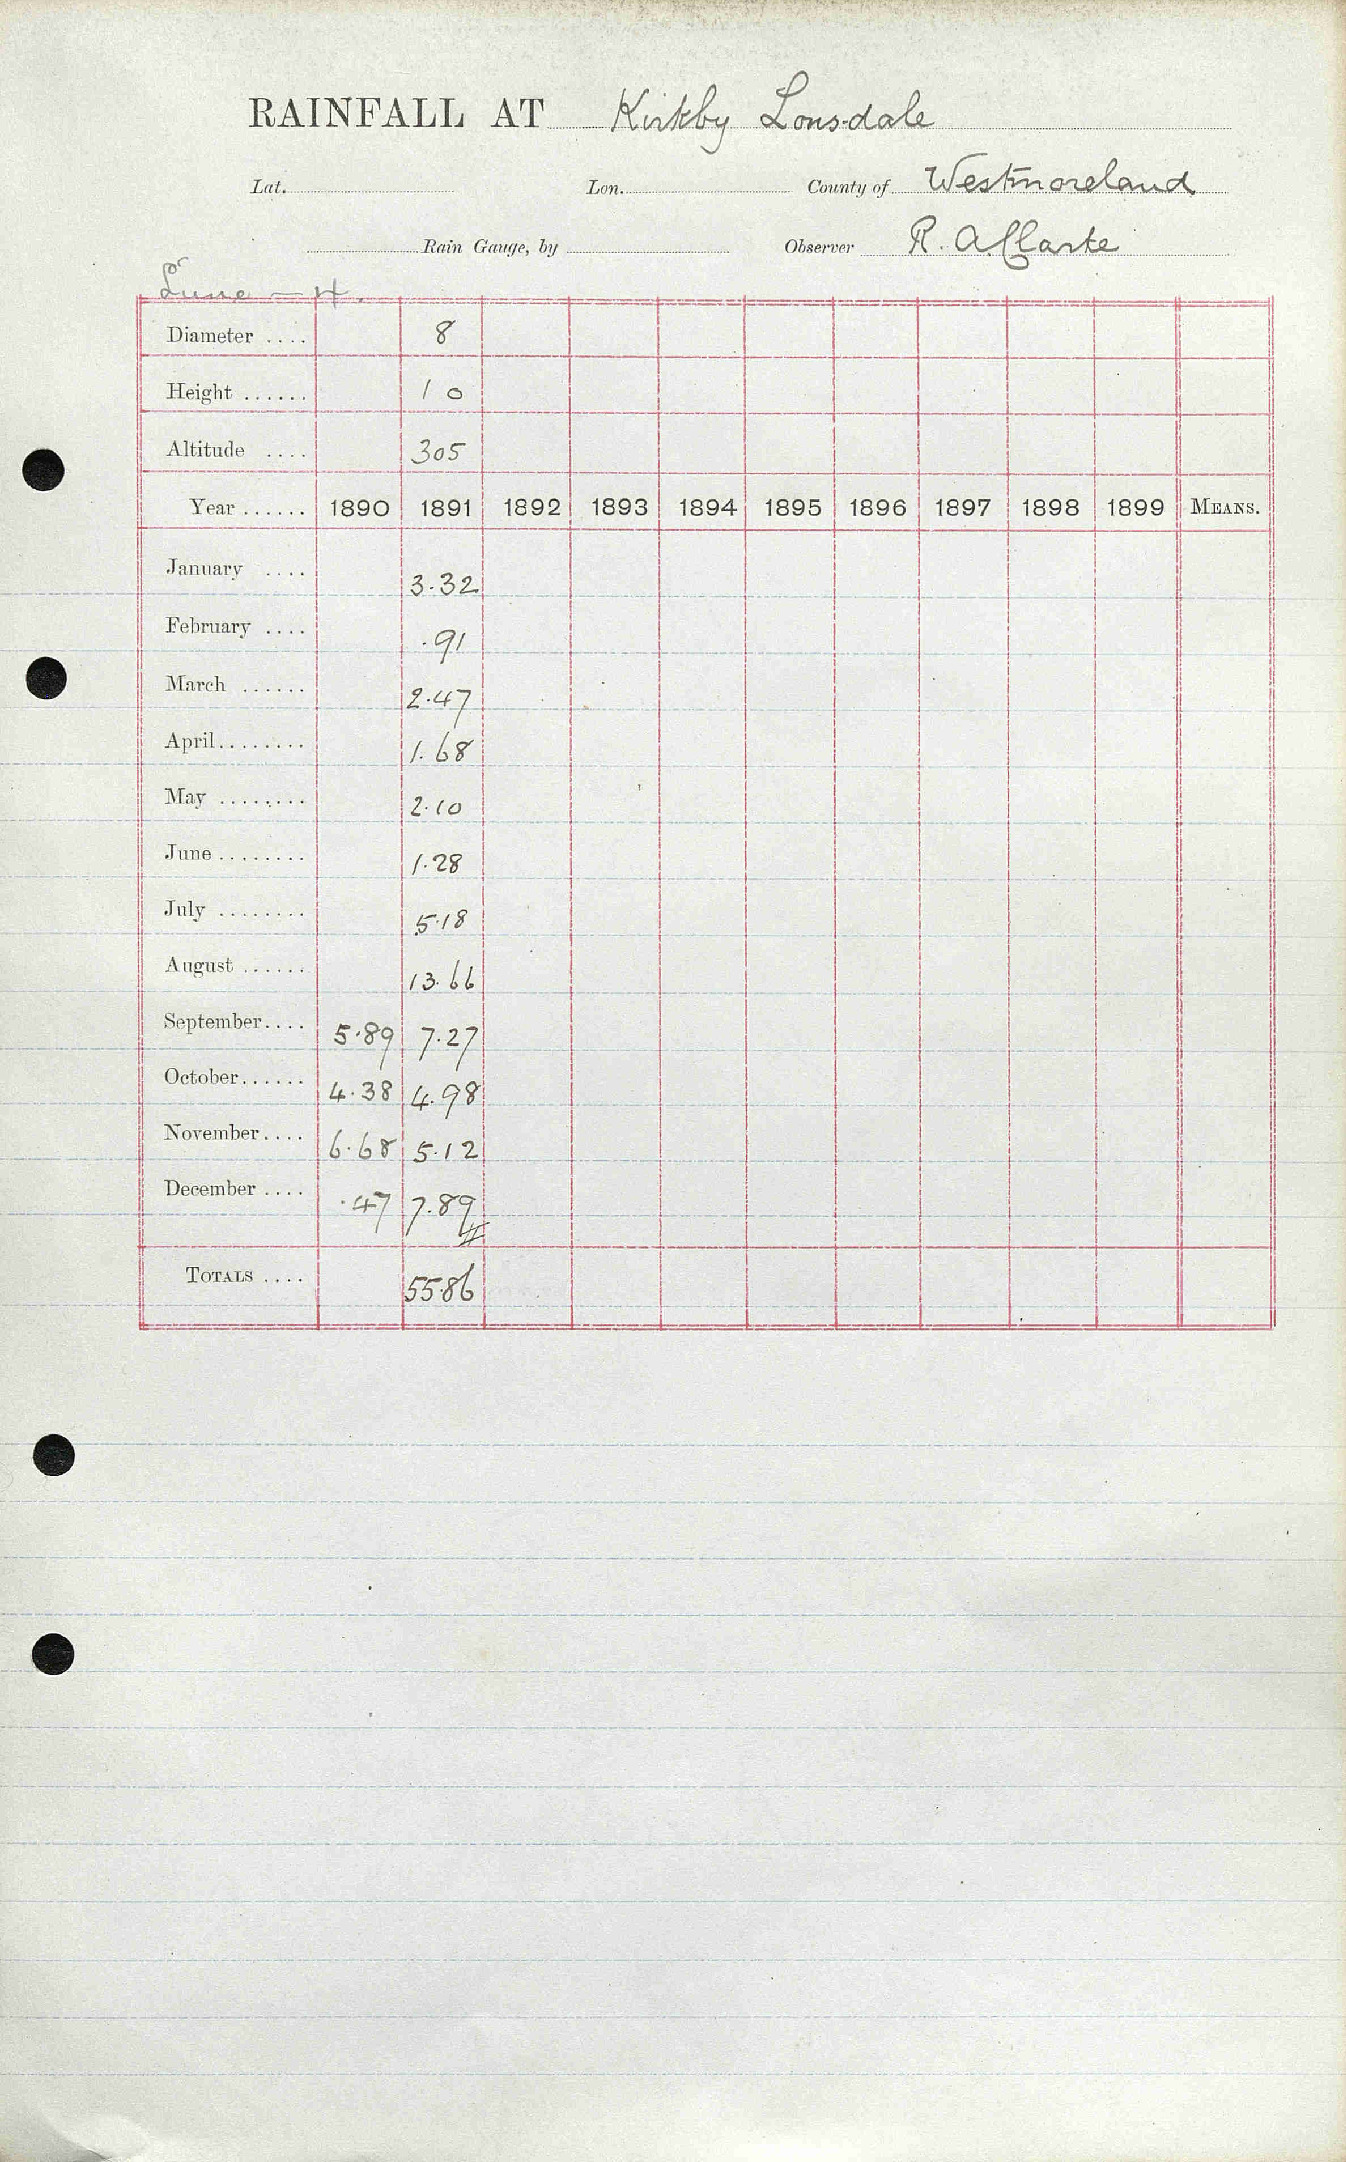 RAINFALL AT Kirkby Lonsdale
Lat. Lon. County of Westmoreland
Rain Gauge, by Observer R. A. Clarke
Lune - 4.
Diameter .... 8
Height ...... 1 0
Altitude .... 305
Year ...... 1890 1891 1892 1893 1894 1895 1896 1897 1898 1899 MEANS.
January .... 3.32
February .... .91
March ...... 2.47
April........ 1.68
May ........ 2.10
June ........ 1.28
July ........ 5.18
August ...... 13.66
September.... 5.89 7.27
October...... 4.38 4.98
November.... 6.68 5.12
December .... .47 7.89
TOTALS .... 55.86